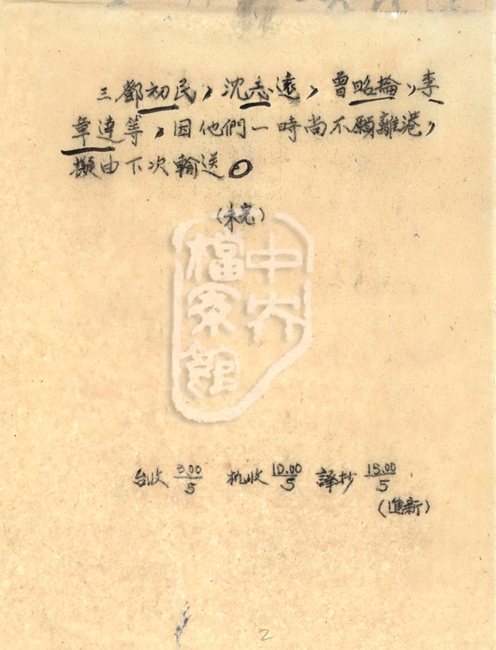 三、鄧初民，沈志遠，曾昭掄，李
章達等，因他們一時尚不願離港，
擬由下次輸送。
（未完）
中央
檔案館
台收 3.00/5 机收 10.00/5 譯抄 15.00/5
（進新）
2